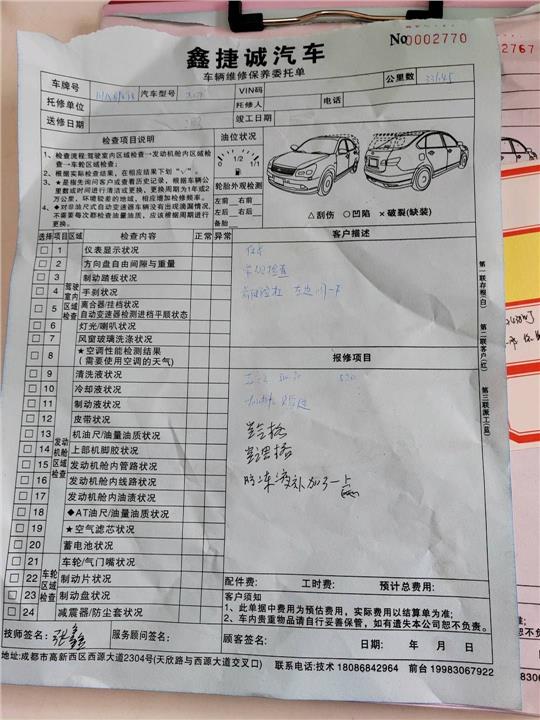 鑫捷诚汽车
No 0002770
车辆维修保养委托单
车牌号
汽车型号
VIN码
公里数
托修单位
托修人
电话
送修日期
竣工日期
检查项目说明
油位状况
1、检查流程:驾驶室内区域检查→发动机舱内区域检查→车轮区域检查。
2、根据实际检查结果,在相应结果下划"√"。
3、★是指先询问客户或查看历史记录,根据车辆公里数或时间进行清洁或更换,更换周期为1年或2万公里,环境较差的地域,相应增加检修频率。
4、◆对非油尺式自动变速器车辆没有出现滴漏情况,不需要每次都检查油量油质,应该根据周期进行更换。
0
1/2
1/1
轮胎外观检测
左前
右前
左后
右后
备胎
△刮伤 ○凹陷 ×破裂(缺装)
选择 项目 区域 检查内容 正常 异常
客户描述
驾驶室内区域检查
1 仪表显示状况
2 方向盘自由间隙与重量
3 制动踏板状况
4 手刹状况
5 离合器/挂档状况
自动变速器检测进档平顺状态
6 灯光/喇叭状况
7 风窗玻璃洗涤状况
8 ★空调性能检测结果
(需要使用空调的天气)
常规检查
报修项目
发动机舱区域检查
9 清洗液状况
10 冷却液状况
11 制动液状况
12 皮带状况
13 机油尺/油量油质状况
14 上部机脚胶状况
15 发动机舱内管路状况
16 发动机舱内线路状况
17 发动机舱内油渍状况
18 ◆AT油尺/油量油质状况
19 ★空气滤芯状况
20 蓄电池状况
防冻液补加了一点
车轮区域检查
21 车轮/气门嘴状况
22 制动片状况
23 制动盘状况
24 减震器/防尘套状况
配件费: 工时费: 预计总费用:
客户须知
1、此单据中费用为预估费用,实际费用以结算单为准;
2、车内贵重物品请自行妥善保管,如有遗失本公司恕不负责。
技师签名: 张鑫 服务顾问签名: 顾客签名: 日期: 年 月 日
地址:成都市高新西区西源大道2304号(天欣路与西源大道交叉口) 联系电话:技术 18086842964 前台 19983067922
第一联存根(白)
第二联客户(红)
第三联派工(蓝)
2767